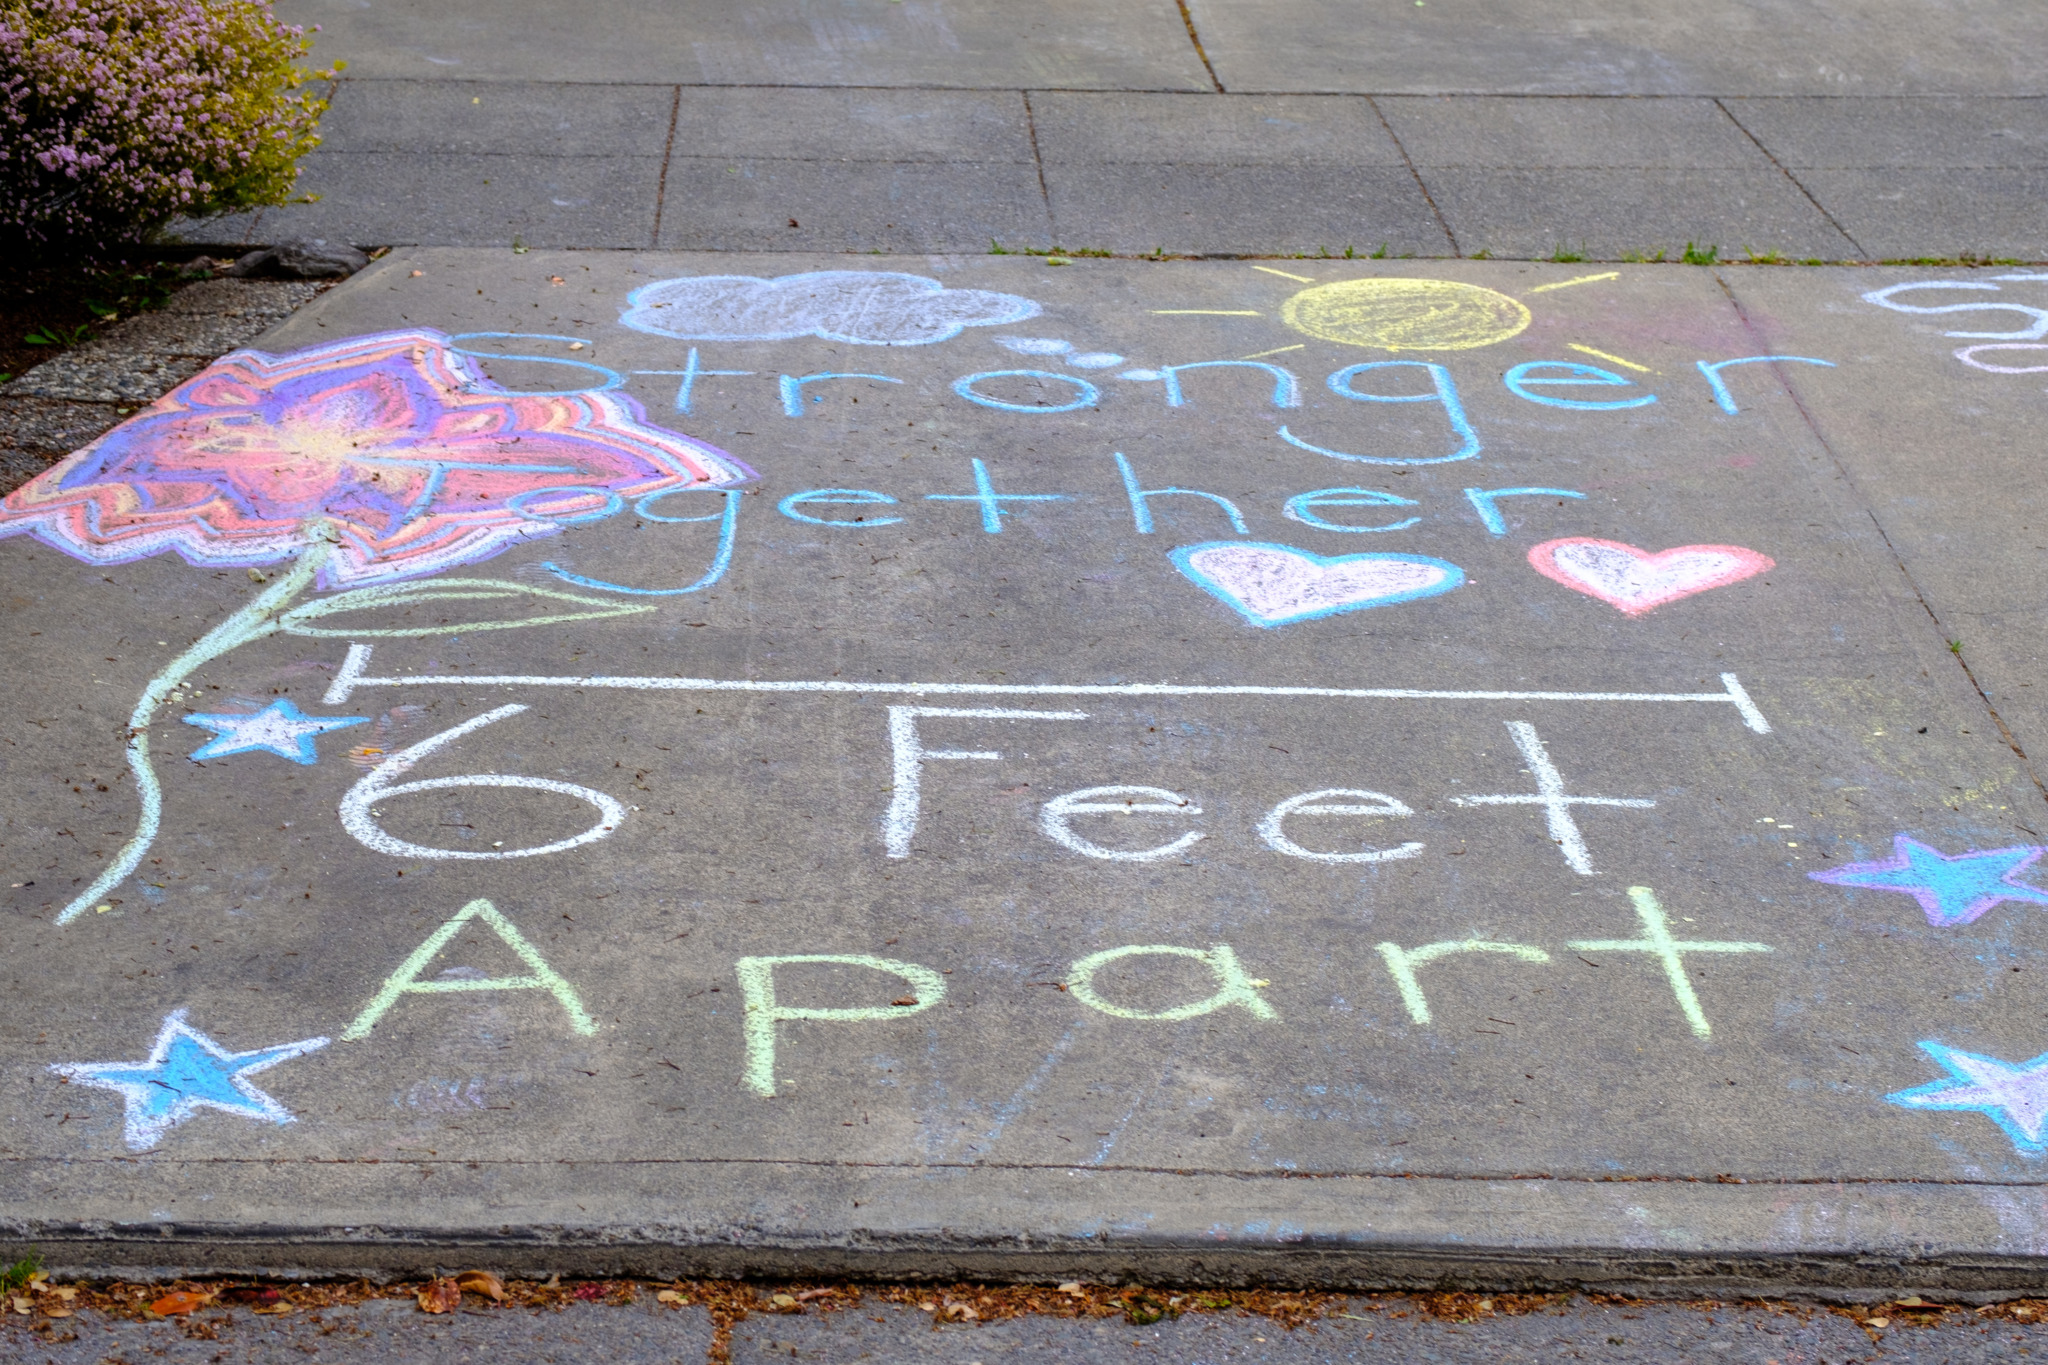 Stronger
Together
6 Feet
Apart